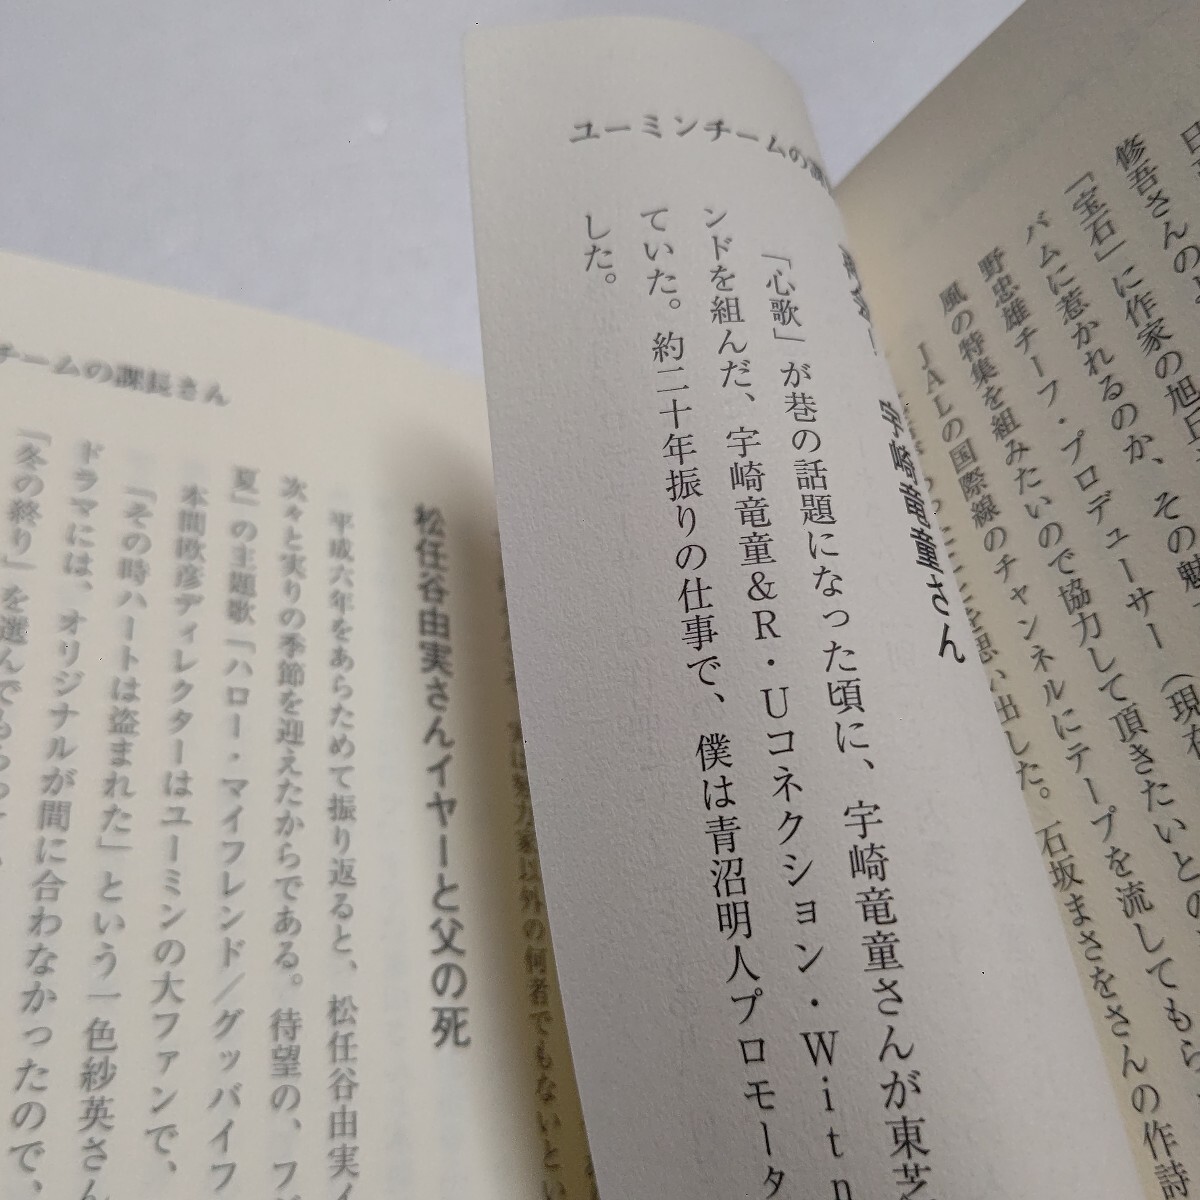 修吾さんの
「宝石」に作家の旭
バムに惹かれるのか、その魅
野忠雄チーフ・プロデューサー（現在
風の特集を組みたいので協力して頂きたいとの
JALの国際線のチャンネルにテープを流してもら
を思い出した。石坂まさをさんの作詩
宇崎竜童さん
「心歌」が巷の話題になった頃に、宇崎竜童さんが東芝
ンドを組んだ、宇崎竜童&R・Uコネクション・Witn
ていた。約二十年振りの仕事で、僕は青沼明人プロモータ
した。
ユーミンチームの課
家以外の何者でもないとい
松任谷由実さんイヤーと父の死
平成六年をあらためて振り返ると、松任谷由実イ
次々と実りの季節を迎えたからである。待望の、フ
夏」の主題歌「ハロー・マイフレンド／グッバイフ
本間欧彦ディレクターはユーミンの大ファンで、
「その時ハートは盗まれた」という一色紗英さん
ドラマには、オリジナルが間に合わなかったので、
「冬の終り」を選んでもらっ
チームの課長さん